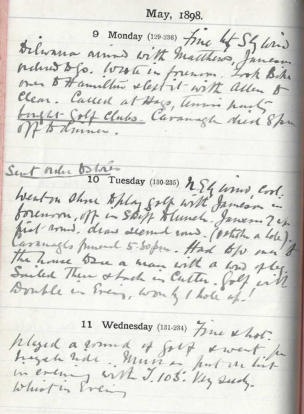 May, 1898.
9 Monday (129-236) Fine Sly wind
arrived with Matthews, Jameson
ordered to go. Wrote in forenoon. Took Bike
over to Hamilton & left it with Allen to
clean. Called at Hags, tennis party
bought Golf Clubs. Cavanagh died 8pm
off to dinner.
Sent order to
10 Tuesday (130-235) N Ely wind, cool.
Went on shore to play golf with Jameson in
forenoon, off in skiff to lunch. Jameson 7 up
first round. draw second round.
Cavanagh's funeral 5.30pm. Had to go over to
the house a man with a wooden leg.
Sailed there & back in Cutter. Golf with
Double in Evening, won by 1 hole up!
11 Wednesday (131-234) Fine & hot
played a round of Golf & went for
bicycle ride. put me
in evening with T. 103. Very seedy.
Whist in Evening